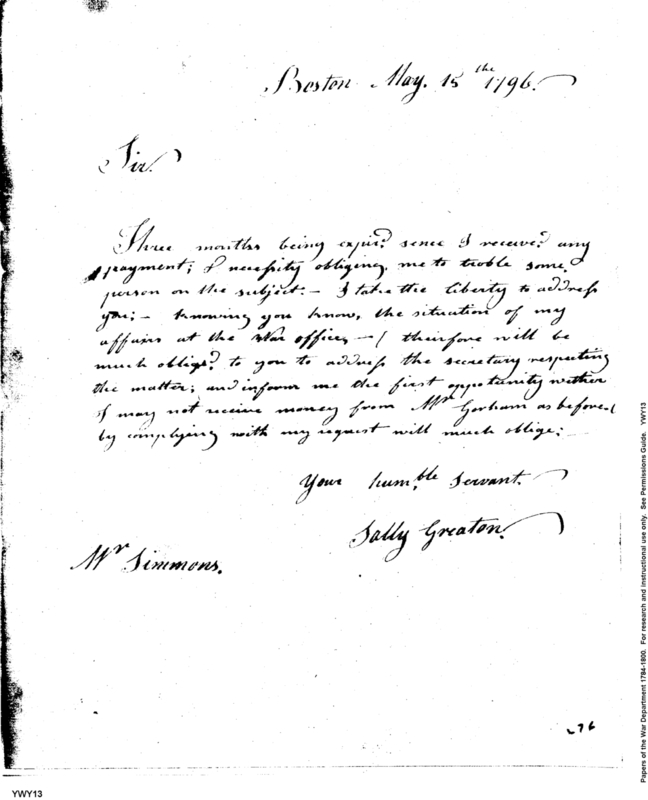 Boston May. 15th 1796.
Sir.
Three months being expir'd sence I receive'd any
payment; & necessity obligeing me to troble some
person on the subject. - I take the liberty to address
you; - knowing you know, the situation of my
affairs at the War office, - I theirfore will be
much oblig'd to you to address the secretary respecting
the matter; and inform me the first opportunity wether
I may not receive money from Mr Gorham as before.
by complying with my request will much oblige; -
Your humble Servant.
Sally Greaton.
Mr Simmons.
276
YWY13
Papers of the War Department 1784-1800. For research and instructional use only. See Permissions Guide. YWY13